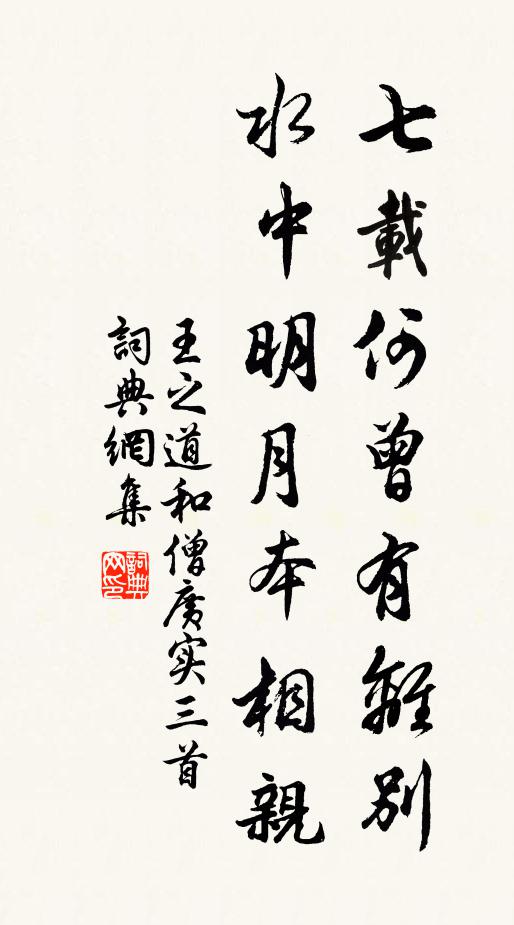 七載何曾有離別
水中明月本相親
王之道和僧廣实三首
詞典網集
詞典
网印